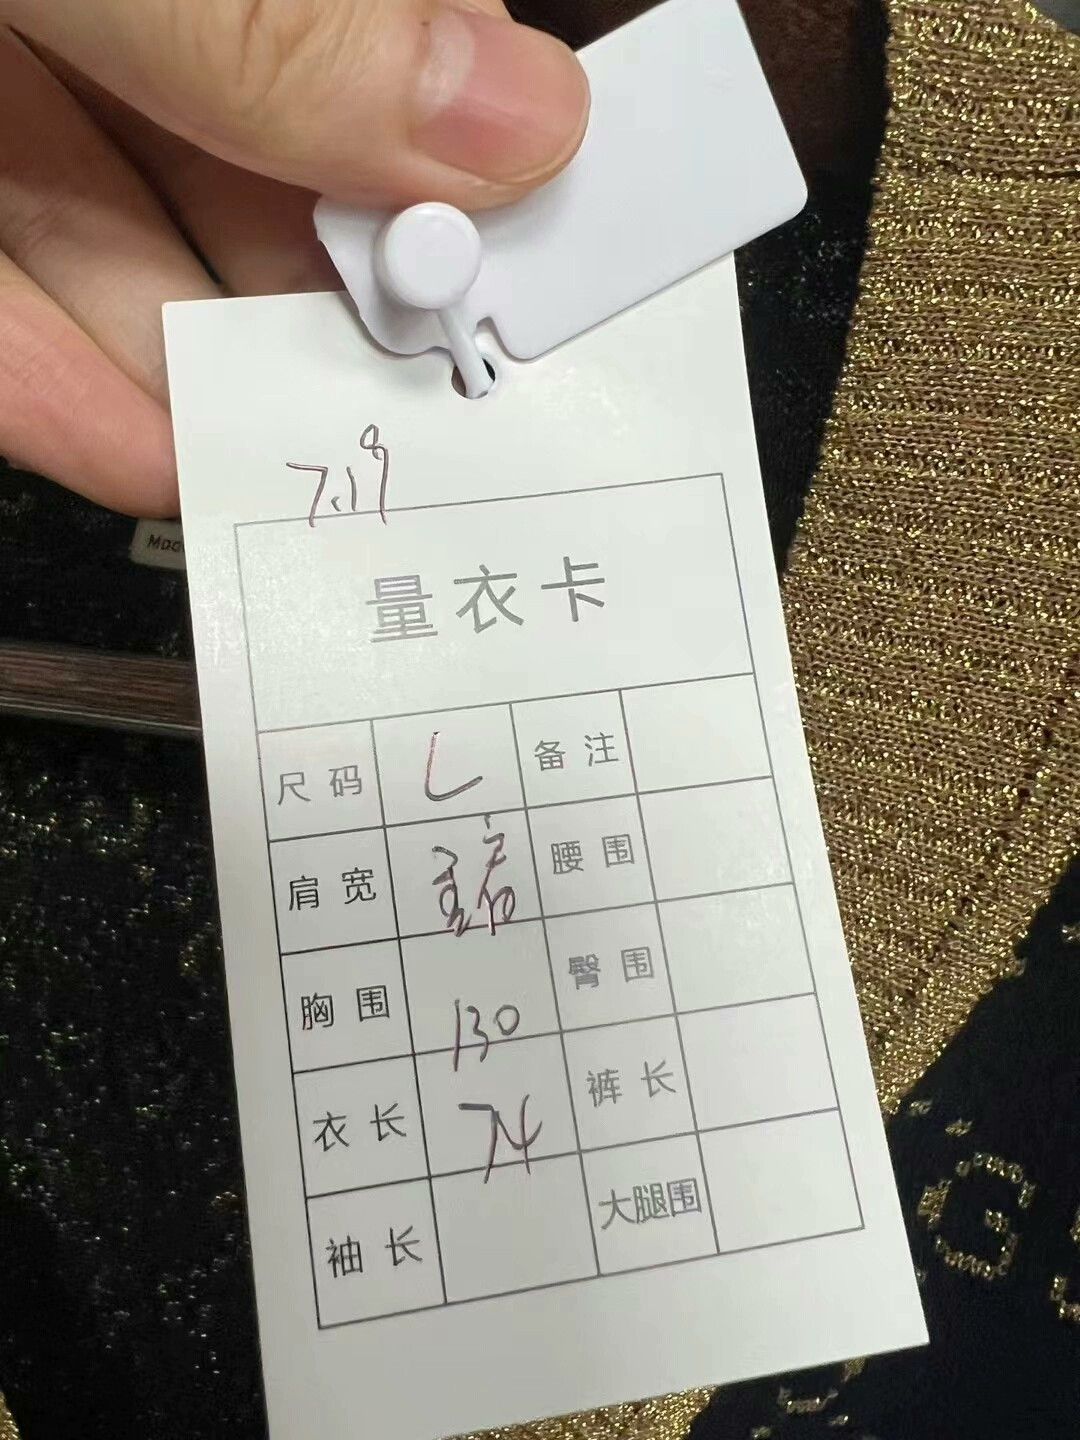 7.19
量衣卡
尺码 L 备注
肩宽 腰围
胸围 130 臀围
衣长 74 裤长
袖长 大腿围